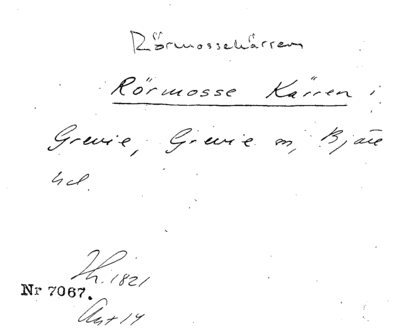 Rörmossekärren
Rörmosse Kärren i
Grevie, Grevie sn, Bjäre
hd.
Th. 1821
Nr 7067.
Avst 14